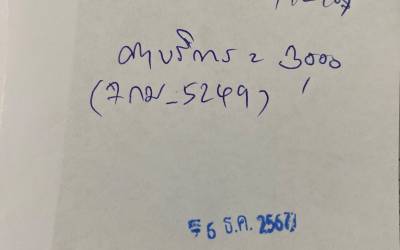 ค่าบริการ = 3,000
(7กม-5249)
6 ธ.ค. 2567